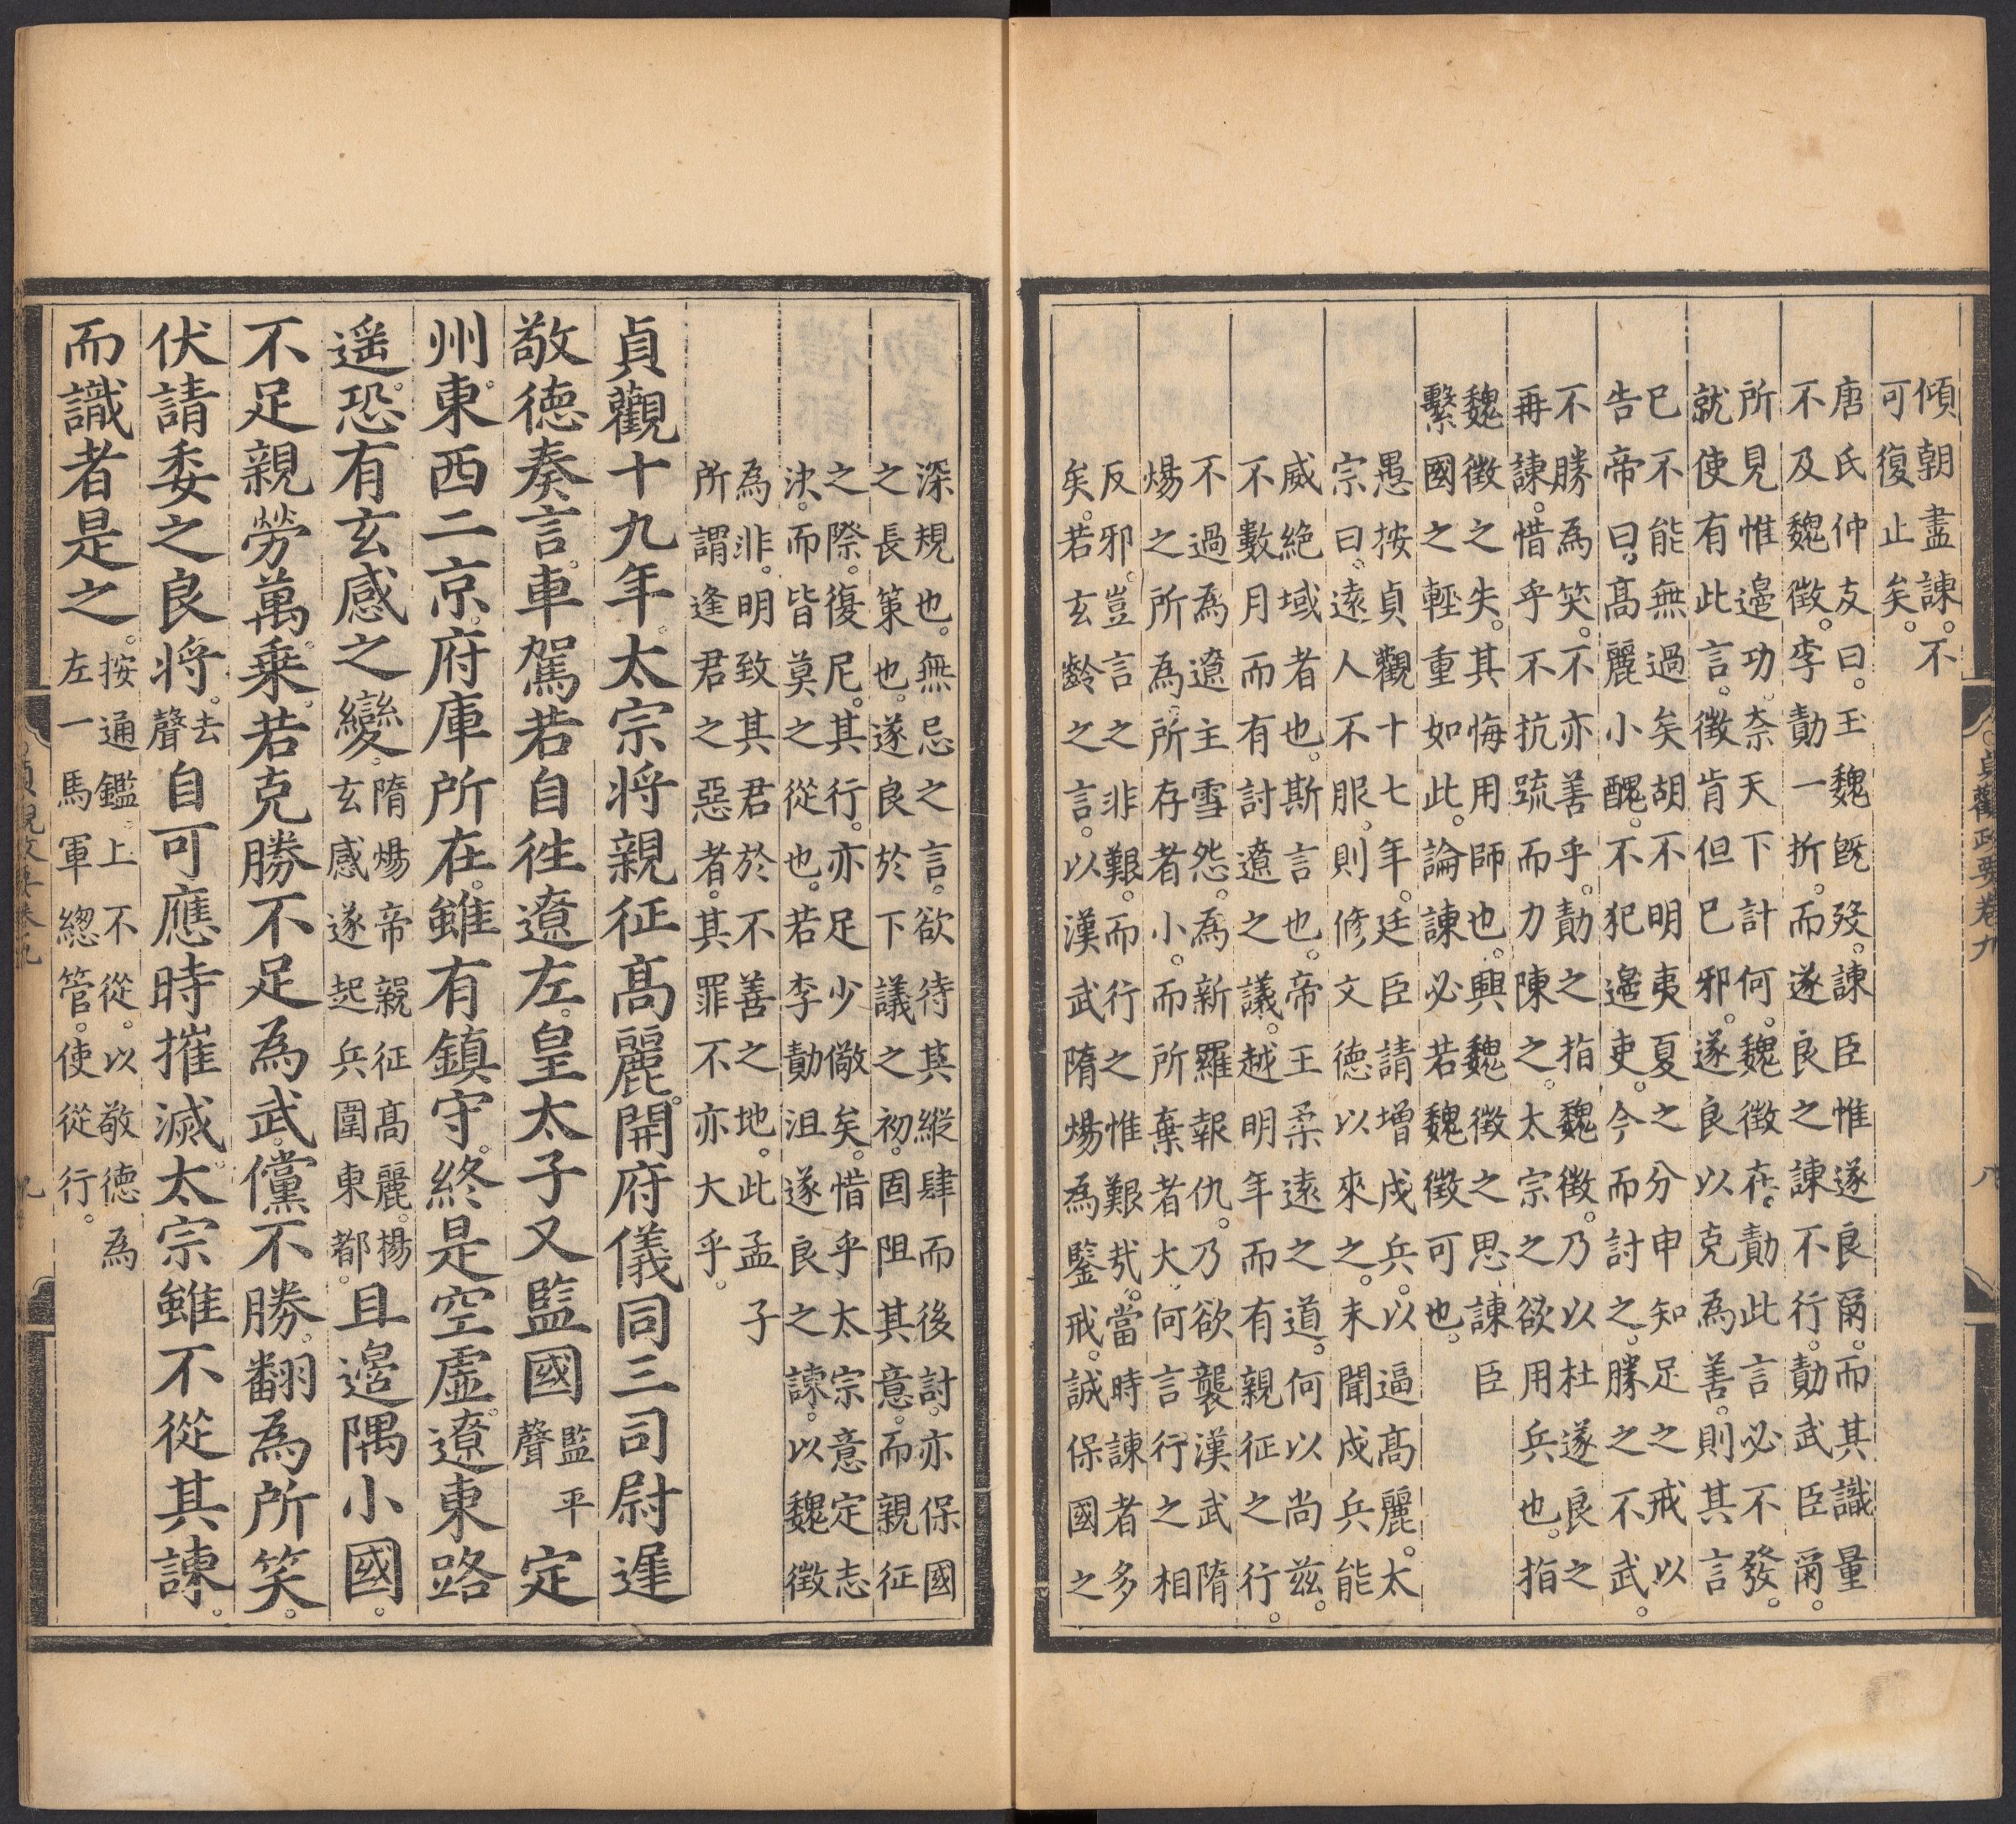 貞觀政要卷九　八
傾朝盡諫。不
可復止矣。
唐氏仲友曰。王魏旣歿。諫臣惟遂良爾。而其識量
不及魏徵。李勣一折。而遂良之諫不行。勣武臣爾。
所見惟邉功。奈天下計何。魏徵在。勣此言必不發。
就使有此言。徵肯但已邪。遂良以克為善。則其言
已不能無過矣。胡不明夷夏之分。申知足之戒。以
告帝曰。髙麗小醜。不犯邉吏。今而討之。勝之不武。
不勝為笑。不亦善乎。勣之指魏徵。乃以杜遂良之
再諫。惜乎不抗疏而力陳之。太宗之欲用兵也。指
魏徵之失。其悔用師也。興魏徵之思。諫臣
繫國之輕重如此。論諫必若魏徵可也。
愚按貞觀十七年。廷臣請增戍兵。以逼髙麗。太
宗曰。遠人不服。則修文德以來之。未聞戍兵能
威絶域者也。斯言也。帝王柔遠之道。何以尚兹。
不數月而有討遼之議。越明年而有親征之行。
不過為遼主雪怨。為新羅報仇。乃欲襲漢武隋
煬之所為。所存者小。而所棄者大。何言行之相
反邪。豈言之非艱。而行之惟艱哉。當時諫者多
矣。若玄齡之言。以漢武隋煬為鑒戒。誠保國之
深規也。無忌之言。欲待其縱肆而後討。亦保國
之長策也。遂良於下議之初。固阻其意。而親征
之際。復尼其行。亦足少儆矣。惜乎太宗意定志
決。而皆莫之從也。若李勣沮遂良之諫。以魏徵
為非。明致其君於不善之地。此孟子
所謂逢君之惡者。其罪不亦大乎。
貞觀十九年。太宗将親征髙麗。開府儀同三司尉遲
敬徳奏言。車駕若自徃遼左。皇太子又監國監平聲定
州。東西二京。府庫所在。雖有鎮守。終是空虛。遼東路
遥。恐有玄感之變。隋煬帝親征髙麗。楊玄感遂起兵圍東都。且邉隅小國。
不足親勞萬乗。若克勝不足為武。儻不勝。翻為所笑。
伏請委之良将。去聲自可應時摧滅。太宗雖不從其諫。
而識者是之。按通鑑。上不從。以敬徳為左一馬軍總管。使從行。